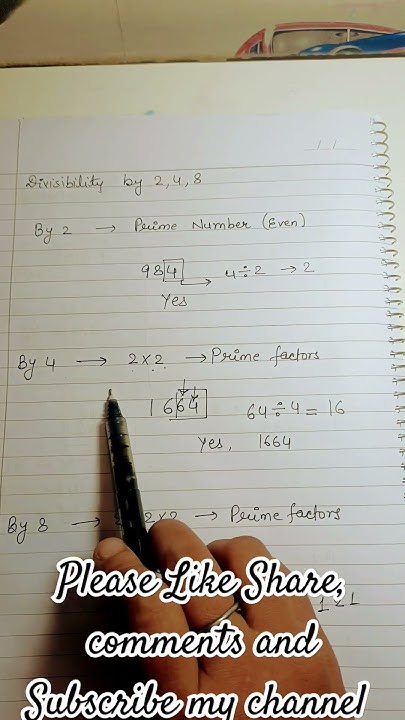 Divisibility by 2,4,8
By 2 → Prime Number (Even)
984 → 4÷2 → 2
Yes
By 4 → 2×2 → Prime factors
1664 64÷4 = 16
Yes, 1664
By 8 → 2×2 → Prime factors
Please Like Share,
comments and
Subscribe my channel